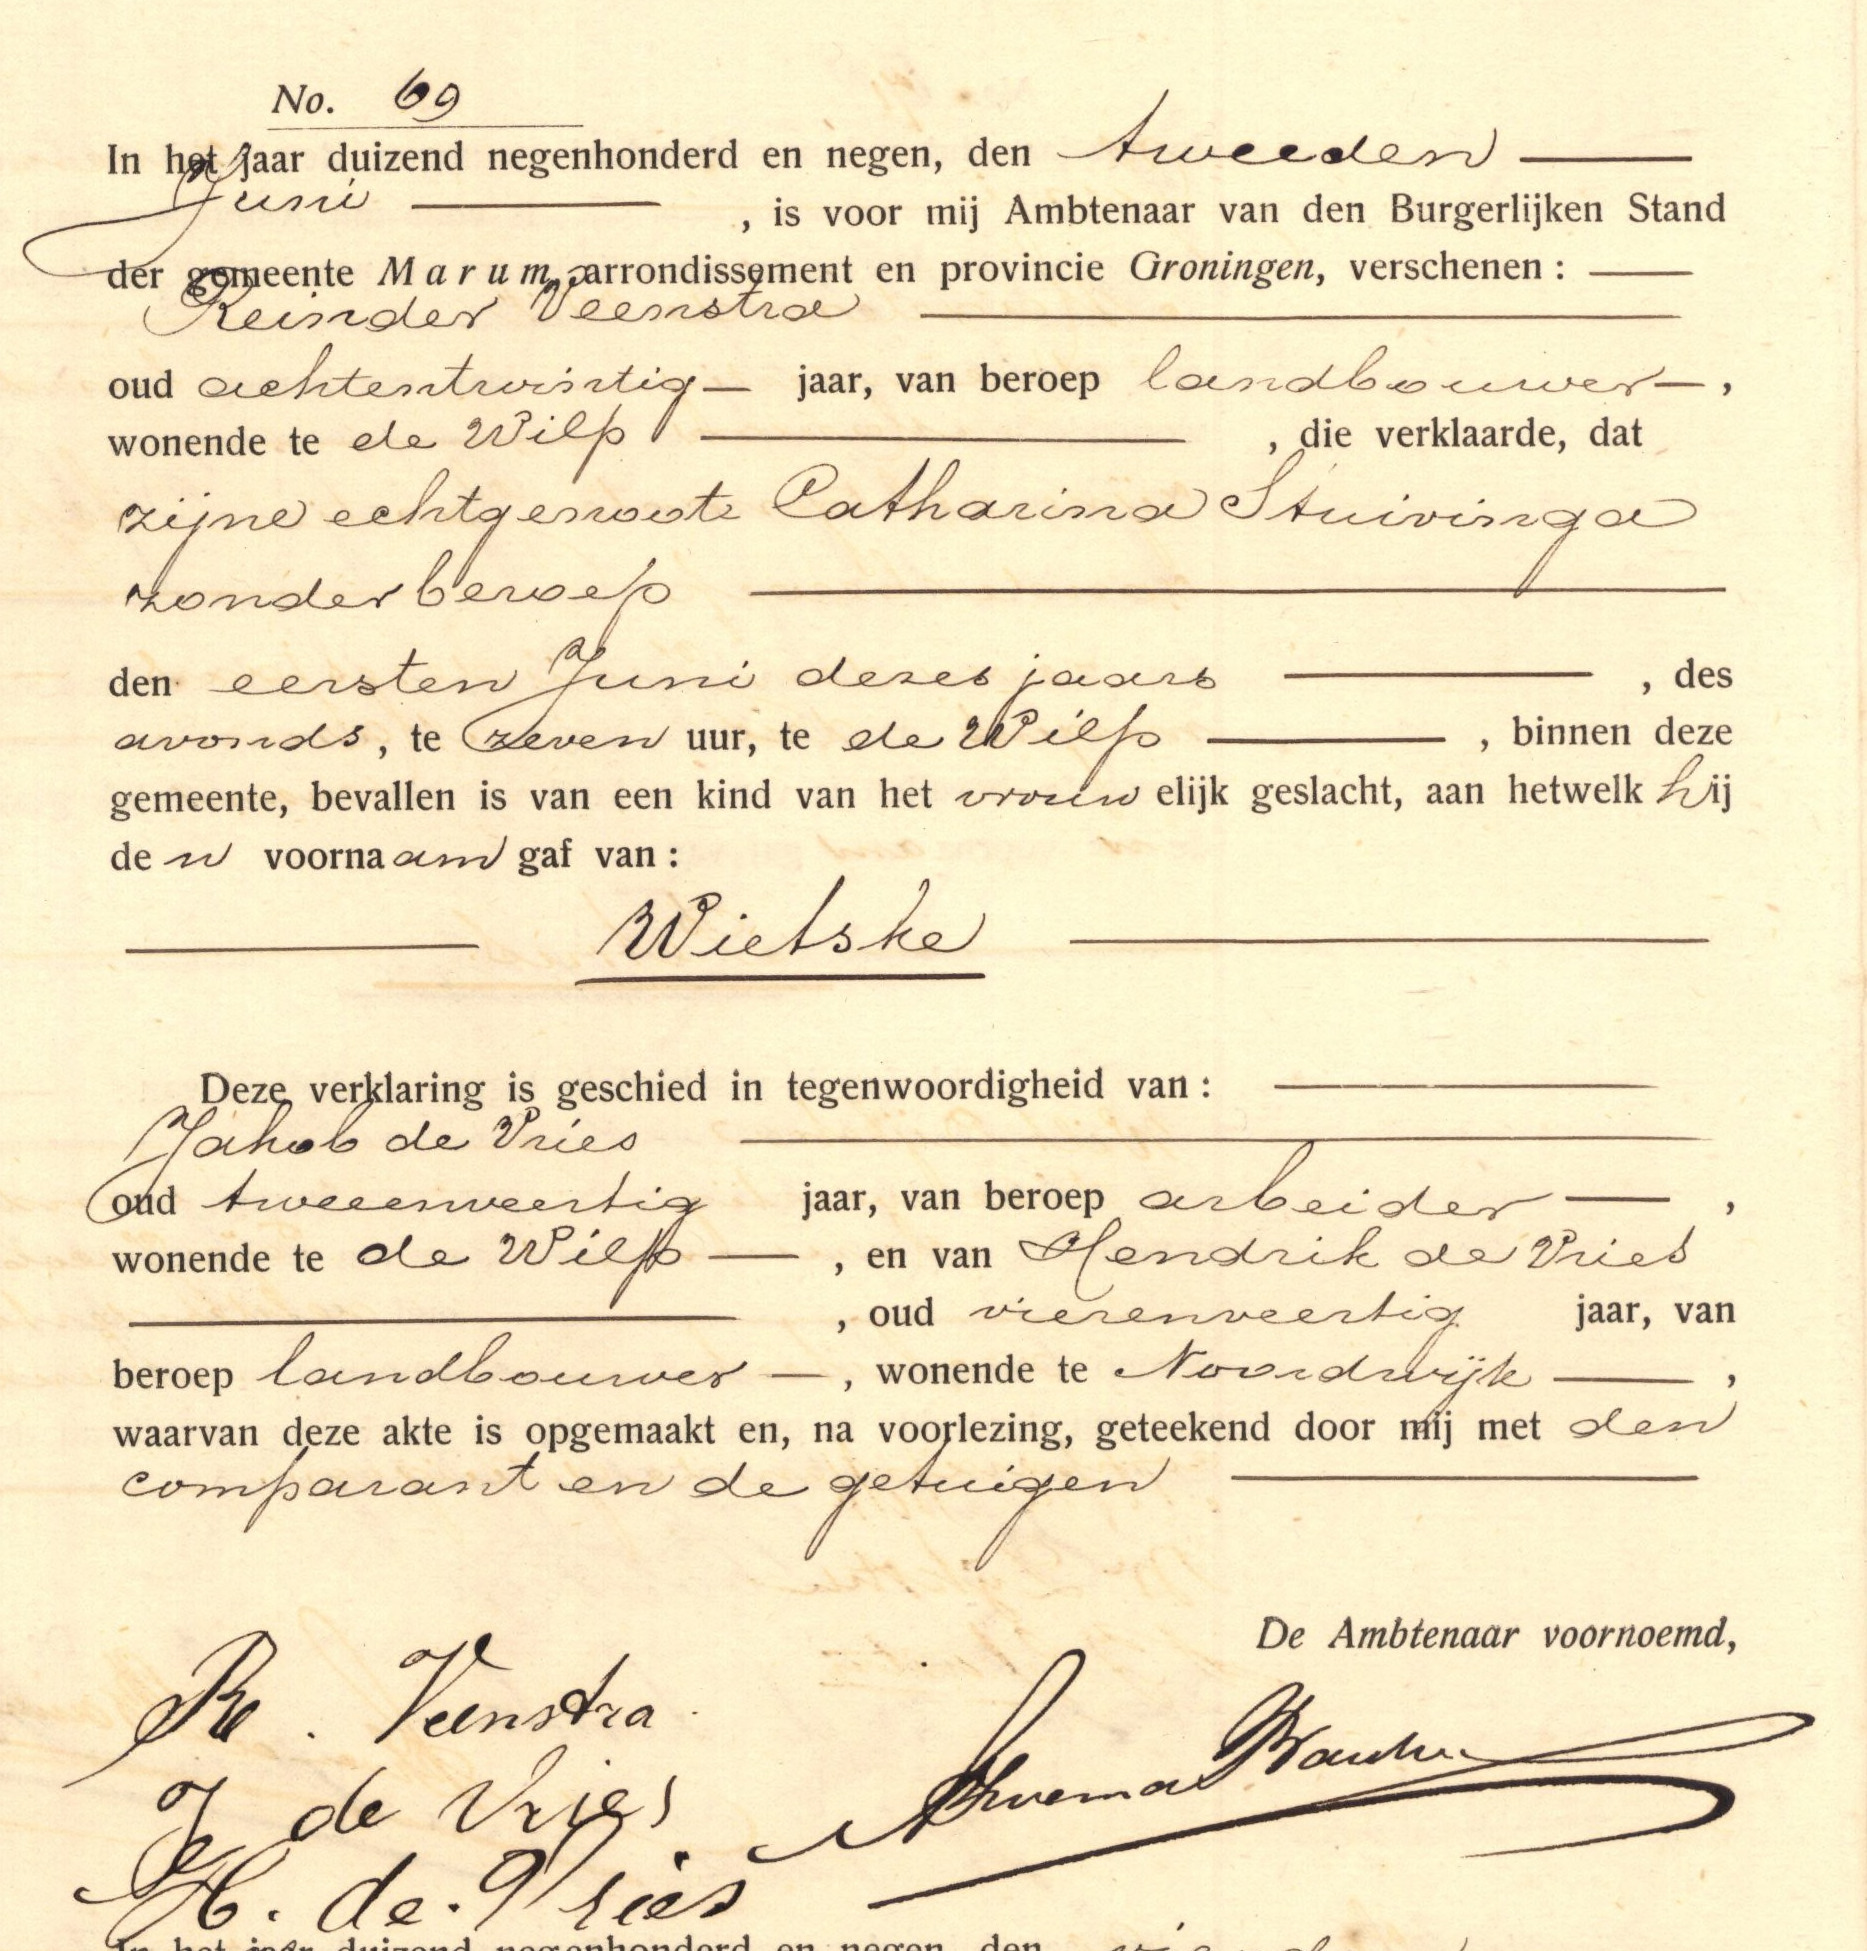 No. 69
In het jaar duizend negenhonderd en negen, den tweeden
Juni , is voor mij Ambtenaar van den Burgerlijken Stand
der gemeente Marum, arrondissement en provincie Groningen, verschenen :
Reinder Veenstra
oud achtentwintig jaar, van beroep landbouwer ,
wonende te de Wilp , die verklaarde, dat
zijne echtgenoote Catharina Stuivinga
zonder beroep
den eersten Juni dezes jaars , des
avonds, te zeven uur, te de Wilp , binnen deze
gemeente, bevallen is van een kind van het vrouwelijk geslacht, aan hetwelk hij
den voornaam gaf van :
Wietske
Deze verklaring is geschied in tegenwoordigheid van :
Jakob de Vries
oud tweeenveertig jaar, van beroep arbeider ,
wonende te de Wilp , en van Hendrik de Vries
, oud vierenveertig jaar, van
beroep landbouwer , wonende te Noordwijk ,
waarvan deze akte is opgemaakt en, na voorlezing, geteekend door mij met den
comparant en de getuigen
De Ambtenaar voornoemd,
R. Veenstra
J de Vries
H. de Vries
In het jaar duizend negenhonderd en negen, den